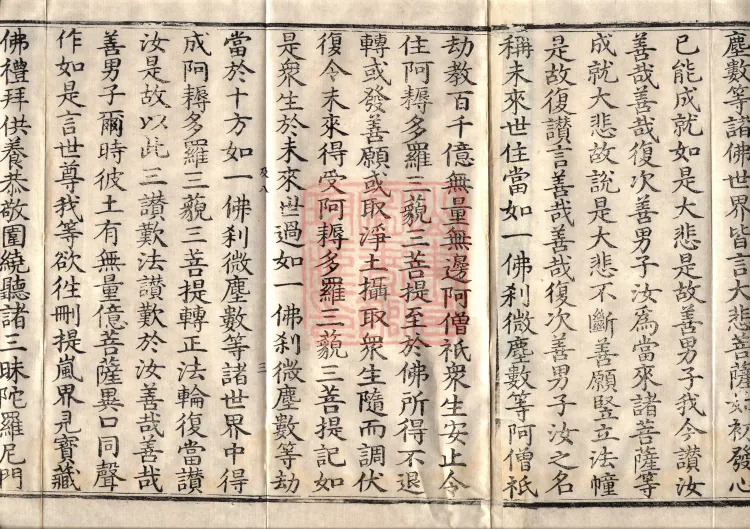 塵數等諸佛世界皆言大悲菩薩汝初發心
已能成就如是大悲是故善男子我今讚汝
善哉善哉復次善男子汝爲當來諸菩薩等
成就大悲故說是大悲不斷善願竪立法幢
是故復讚言善哉善哉復次善男子汝之名
稱未來世住當如一佛刹微塵數等阿僧祇
劫教百千億無量無邊阿僧祇衆生安止令
住阿耨多羅三藐三菩提至於佛所得不退
轉或發善願或取淨土攝取衆生隨而調伏
復令未來得受阿耨多羅三藐三菩提記如
是衆生於未來世過如一佛刹微塵數等劫
及八 三
當於十方如一佛刹微塵數等諸世界中得
成阿耨多羅三藐三菩提轉正法輪復當讚
汝是故以此三讚歎法讚歎於汝善哉善哉
善男子爾時彼土有無量億菩薩異口同聲
作如是言世尊我等欲往刪提嵐界見寶藏
佛禮拜供養恭敬圍繞聽諸三昧陀羅尼門